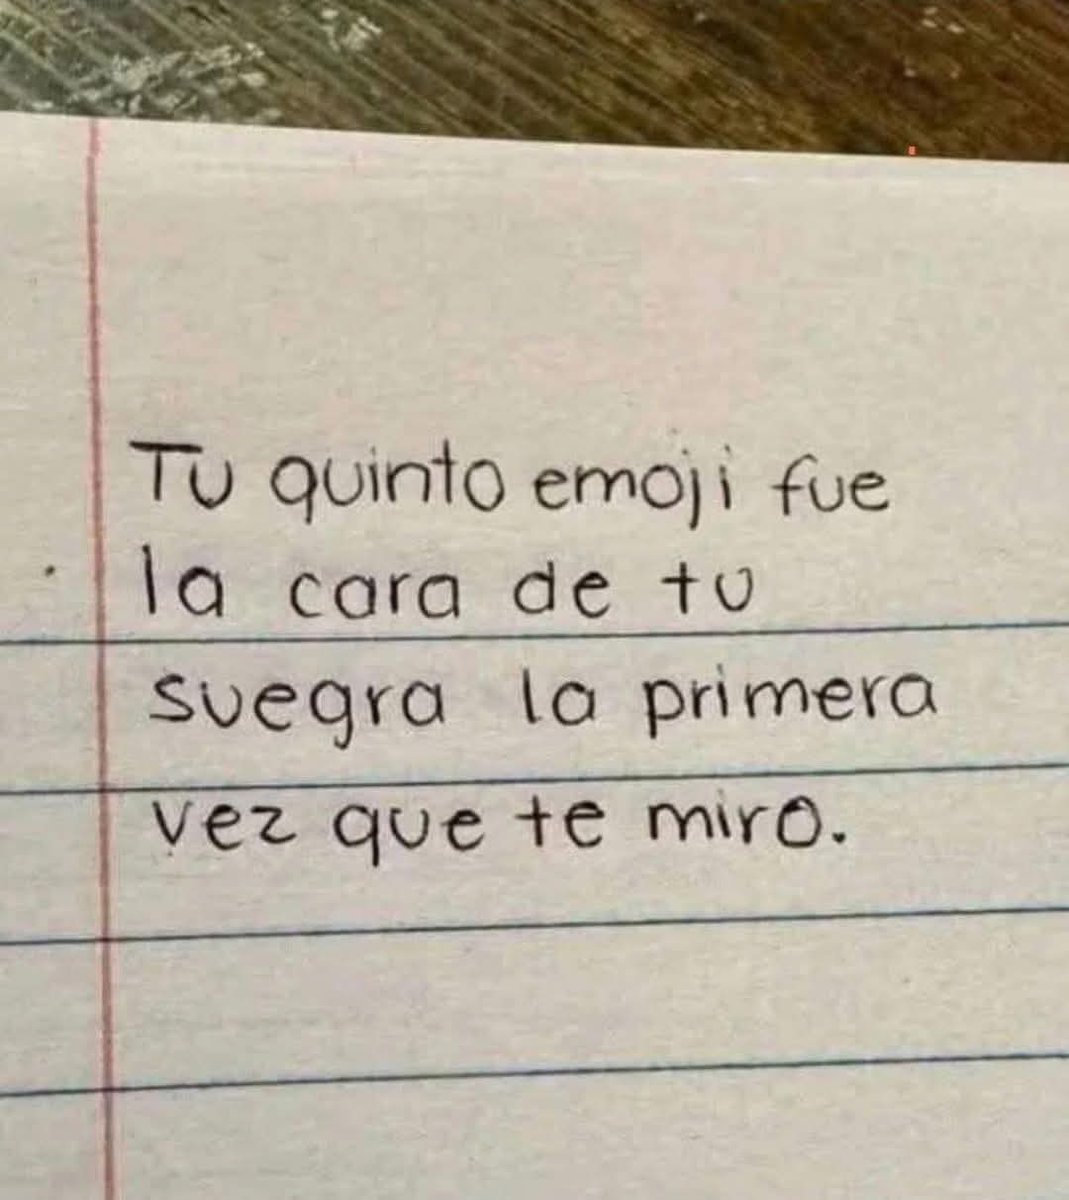 Tu quinto emoji fue
la cara de tu
suegra la primera
vez que te miro.